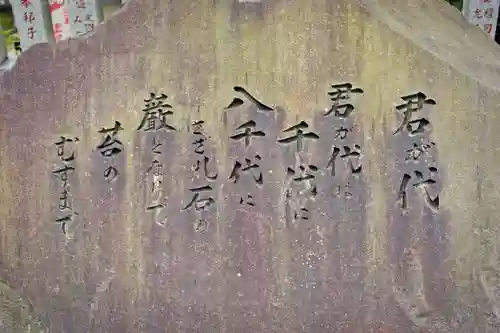 君が代
君が代は
千代に
八千代に
さざれ石の
巌となりて
苔の
むすまで